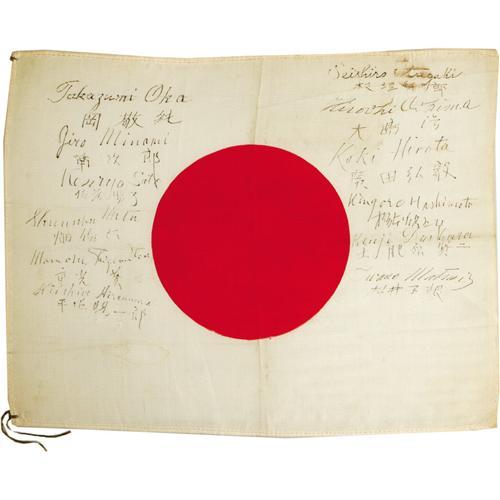 Takazumi Oka
岡敬純
Jiro Minami
南次郎
Kenryo Sato
佐藤賢了
Shunroku Hata
畑俊六
Mamoru Shigemitsu
重光葵
Kiichiro Hiranuma
平沼騏一郎
Seishiro Itagaki
板垣征四郎
Hiroshi Oshima
大島浩
Koki Hirota
廣田弘毅
Kingoro Hashimoto
Kenji Doihara
土肥原賢二
Iwane Matsui
松井石根